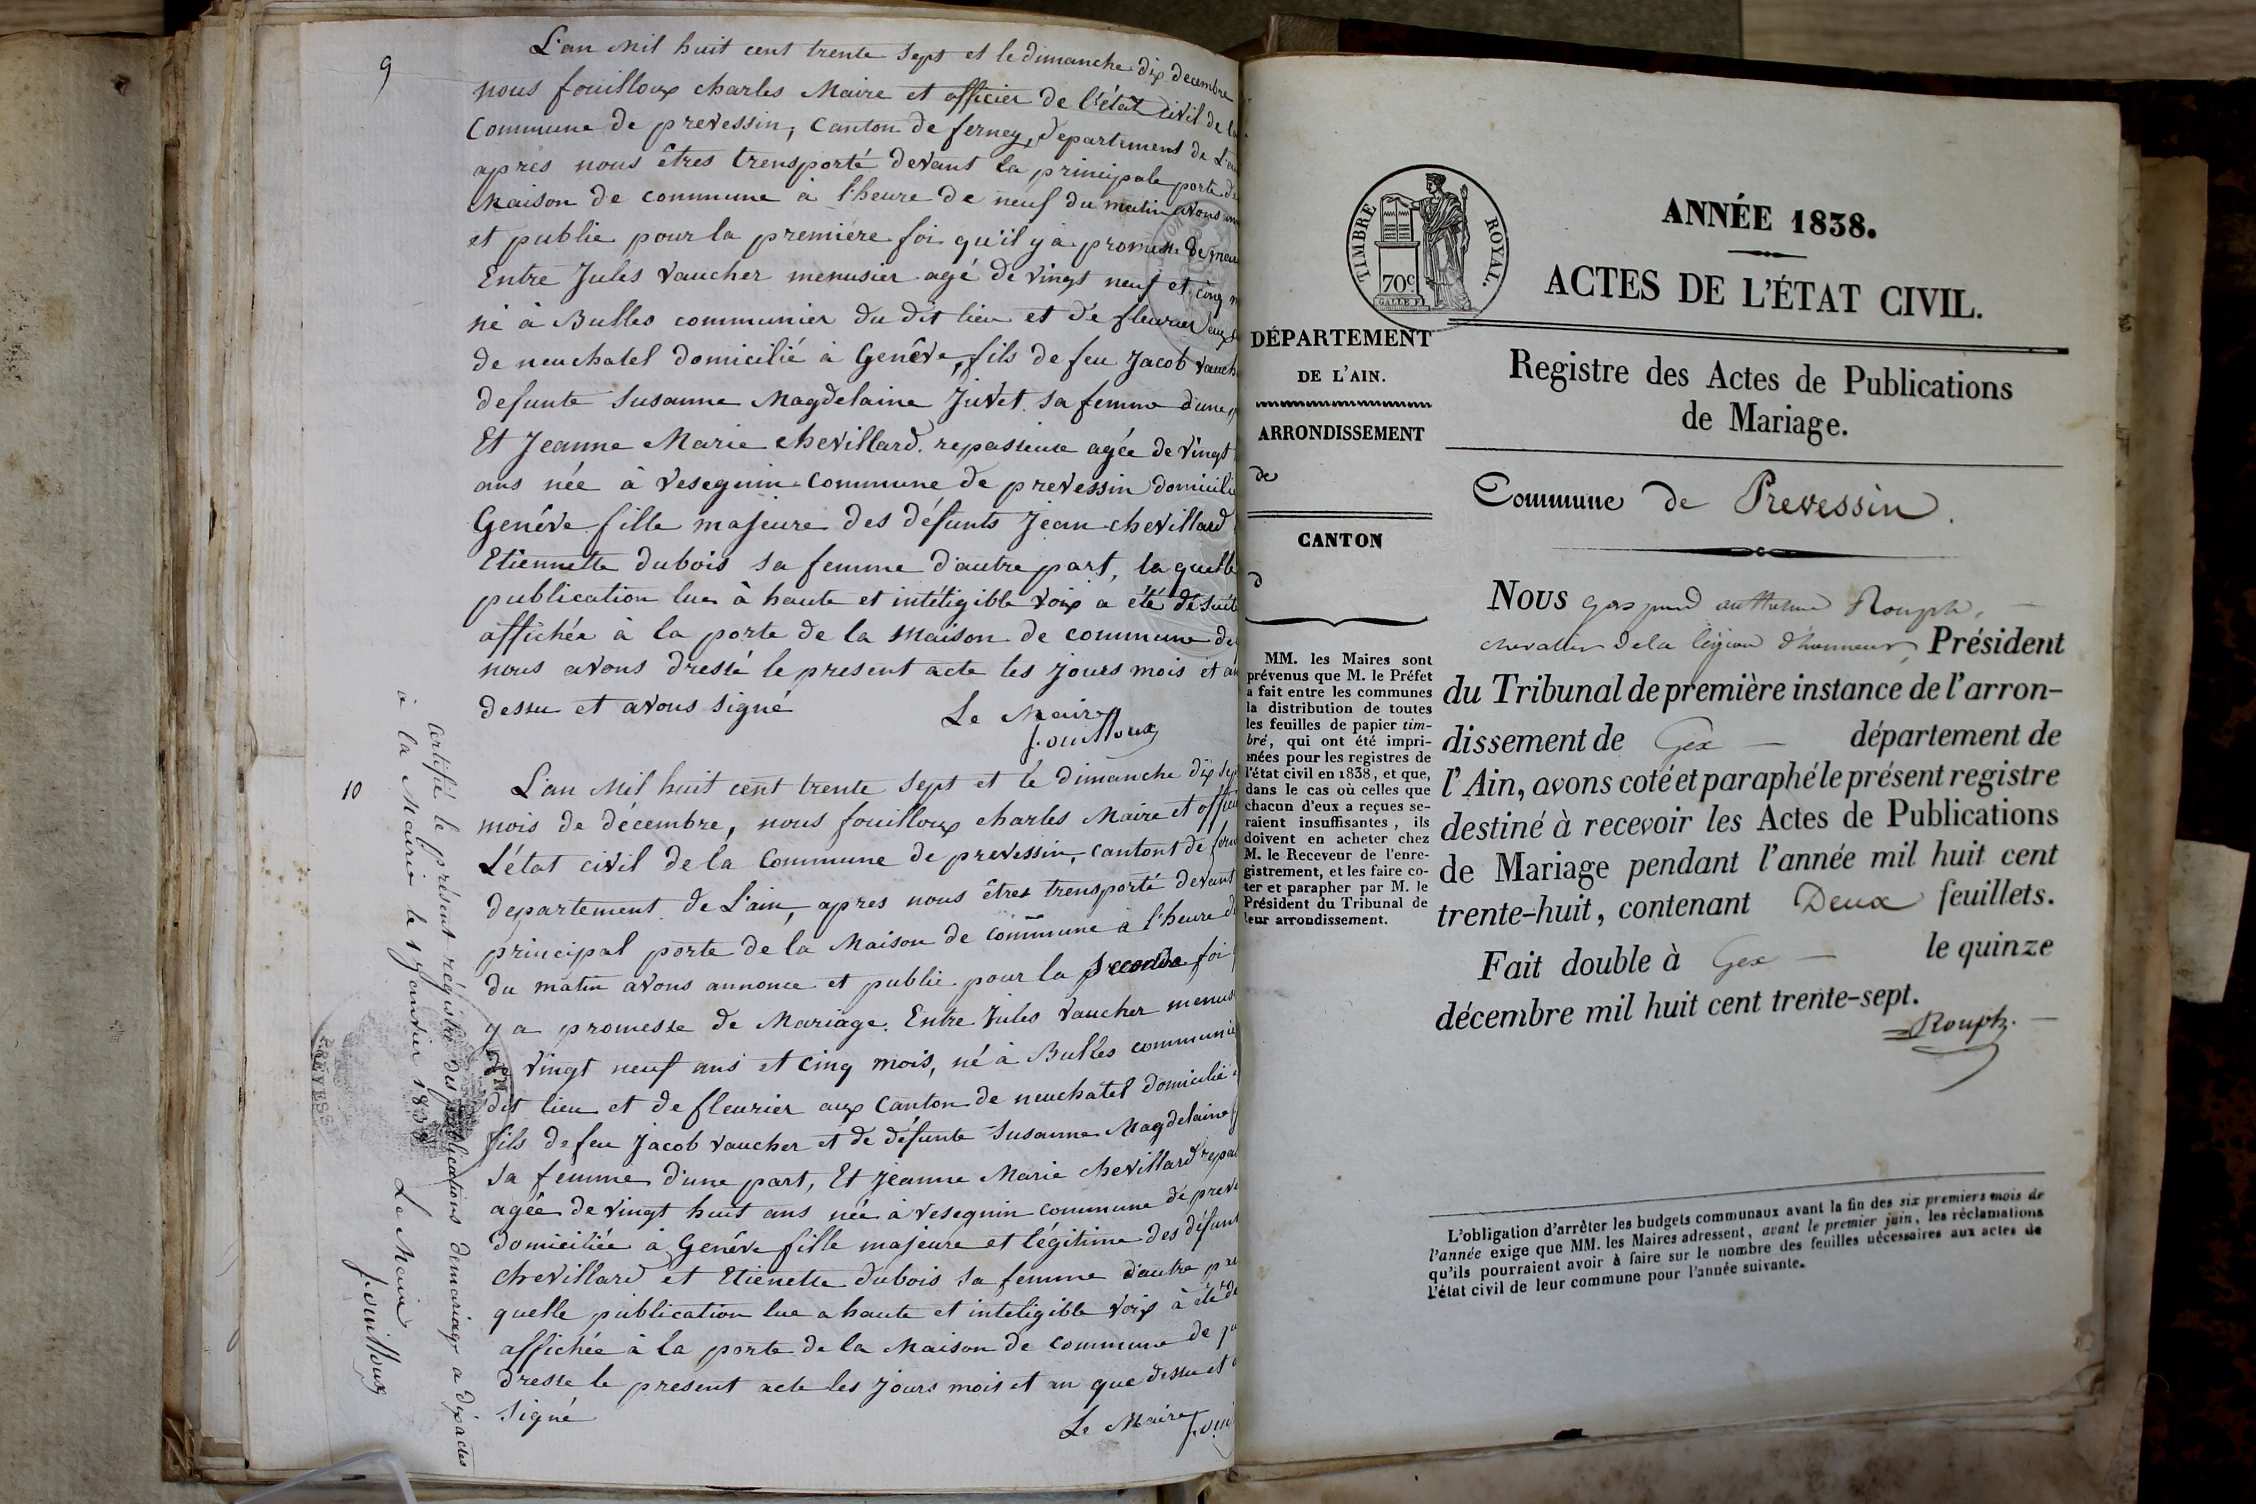 9
L'an Mil huit cent trente sept et le dimanche dix decembre
nous fouilloux charles Maire et officier de l'état civil de la
Commune de prevessin, Canton de ferney, departement de L'ain
apres nous êtres trensporté devant la principale porte de
Maison de commune à l'heure de neuf du matin avons
et publie pour la premiere foi qu'il y a promesse de
Entre Jules Vaucher menusier agé de vingt neuf et cinq
né à Bulles communier du dit lieu et de fleurier aux
de neuchatel domicilié à Genêve, fils de feu Jacob
defunte Susanne Magdelaine Juvet sa femme d'une
Et Jeanne Marie chevillard repasseuse agée de vingt
ans née à Vesegnin Commune de prevessin
Genêve fille majeure des défunts Jean chevillard
Etiennette dubois sa femme d'autre part, la quelle
publication lue à haute et intéligible voix a été
affichée à la porte de la Maison de commune de
nous avons dressé le present acte les jours mois et
dessu et avons signé
Le Maire
fouilloux
10
L'an Mil huit cent trente sept et le dimanche dix
mois de décembre, nous fouilloux charles Maire et
L'état civil de la Commune de prevessin, cantont de
departement de L'ain, apres nous êtres trensporté devant
principal porte de la Maison de commune à l'heure
du matin avons annonce et publie pour la seconde foi
y a promesse de Mariage. Entre Jules Vaucher
de vingt neuf ans et cinq mois, né à Bulles
dit lieu et de fleurier aux Canton de neuchatel domicilié
fils de feu Jacob vaucher et de défunte Susanne Magdelaine
sa femme d'une part, Et Jeanne Marie chevillard
agée de vingt huit ans née à vesegnin commune de
domiciliée à Genêve fille majeure et légitime des
chevillard et Etienette dubois sa femme d'autre
quelle publication lue a haute et inteligible voix à été
affichée à la porte de la Maison de commune de
dresse le present acte les jours mois et an que dessu et
signé
Le Maire
Certifié le présent régistre des publications de mariage a dix actes
à la Mairie le 1 janvier 1838
Le Maire
fouilloux
TIMBRE ROYAL.
70c
GALLE F.
DÉPARTEMENT
DE L'AIN.
ARRONDISSEMENT
de
CANTON
d
MM. les Maires sont
prévenus que M. le Préfet
a fait entre les communes
la distribution de toutes
les feuilles de papier tim-
bré, qui ont été impri-
mées pour les registres de
l'état civil en 1838, et que,
dans le cas où celles que
chacun d'eux a reçues se-
raient insuffisantes, ils
doivent en acheter chez
M. le Receveur de l'enre-
gistrement, et les faire co-
ter et parapher par M. le
Président du Tribunal de
leur arrondissement.
ANNÉE 1838.
ACTES DE L'ÉTAT CIVIL.
Registre des Actes de Publications
de Mariage.
Commune de Prevessin.
Nous gaspard anthelme Rouph,
chevalier de la légion d'honneur, Président
du Tribunal de première instance de l'arron-
dissement de Gex — département de
l'Ain, avons coté et paraphé le présent registre
destiné à recevoir les Actes de Publications
de Mariage pendant l'année mil huit cent
trente-huit, contenant Deux feuillets.
Fait double à Gex — le quinze
décembre mil huit cent trente-sept.
Rouph.
L'obligation d'arrêter les budgets communaux avant la fin des six premiers mois de
l'année exige que MM. les Maires adressent, avant le premier juin, les réclamations
qu'ils pourraient avoir à faire sur le nombre des feuilles nécessaires aux actes de
l'état civil de leur commune pour l'année suivante.